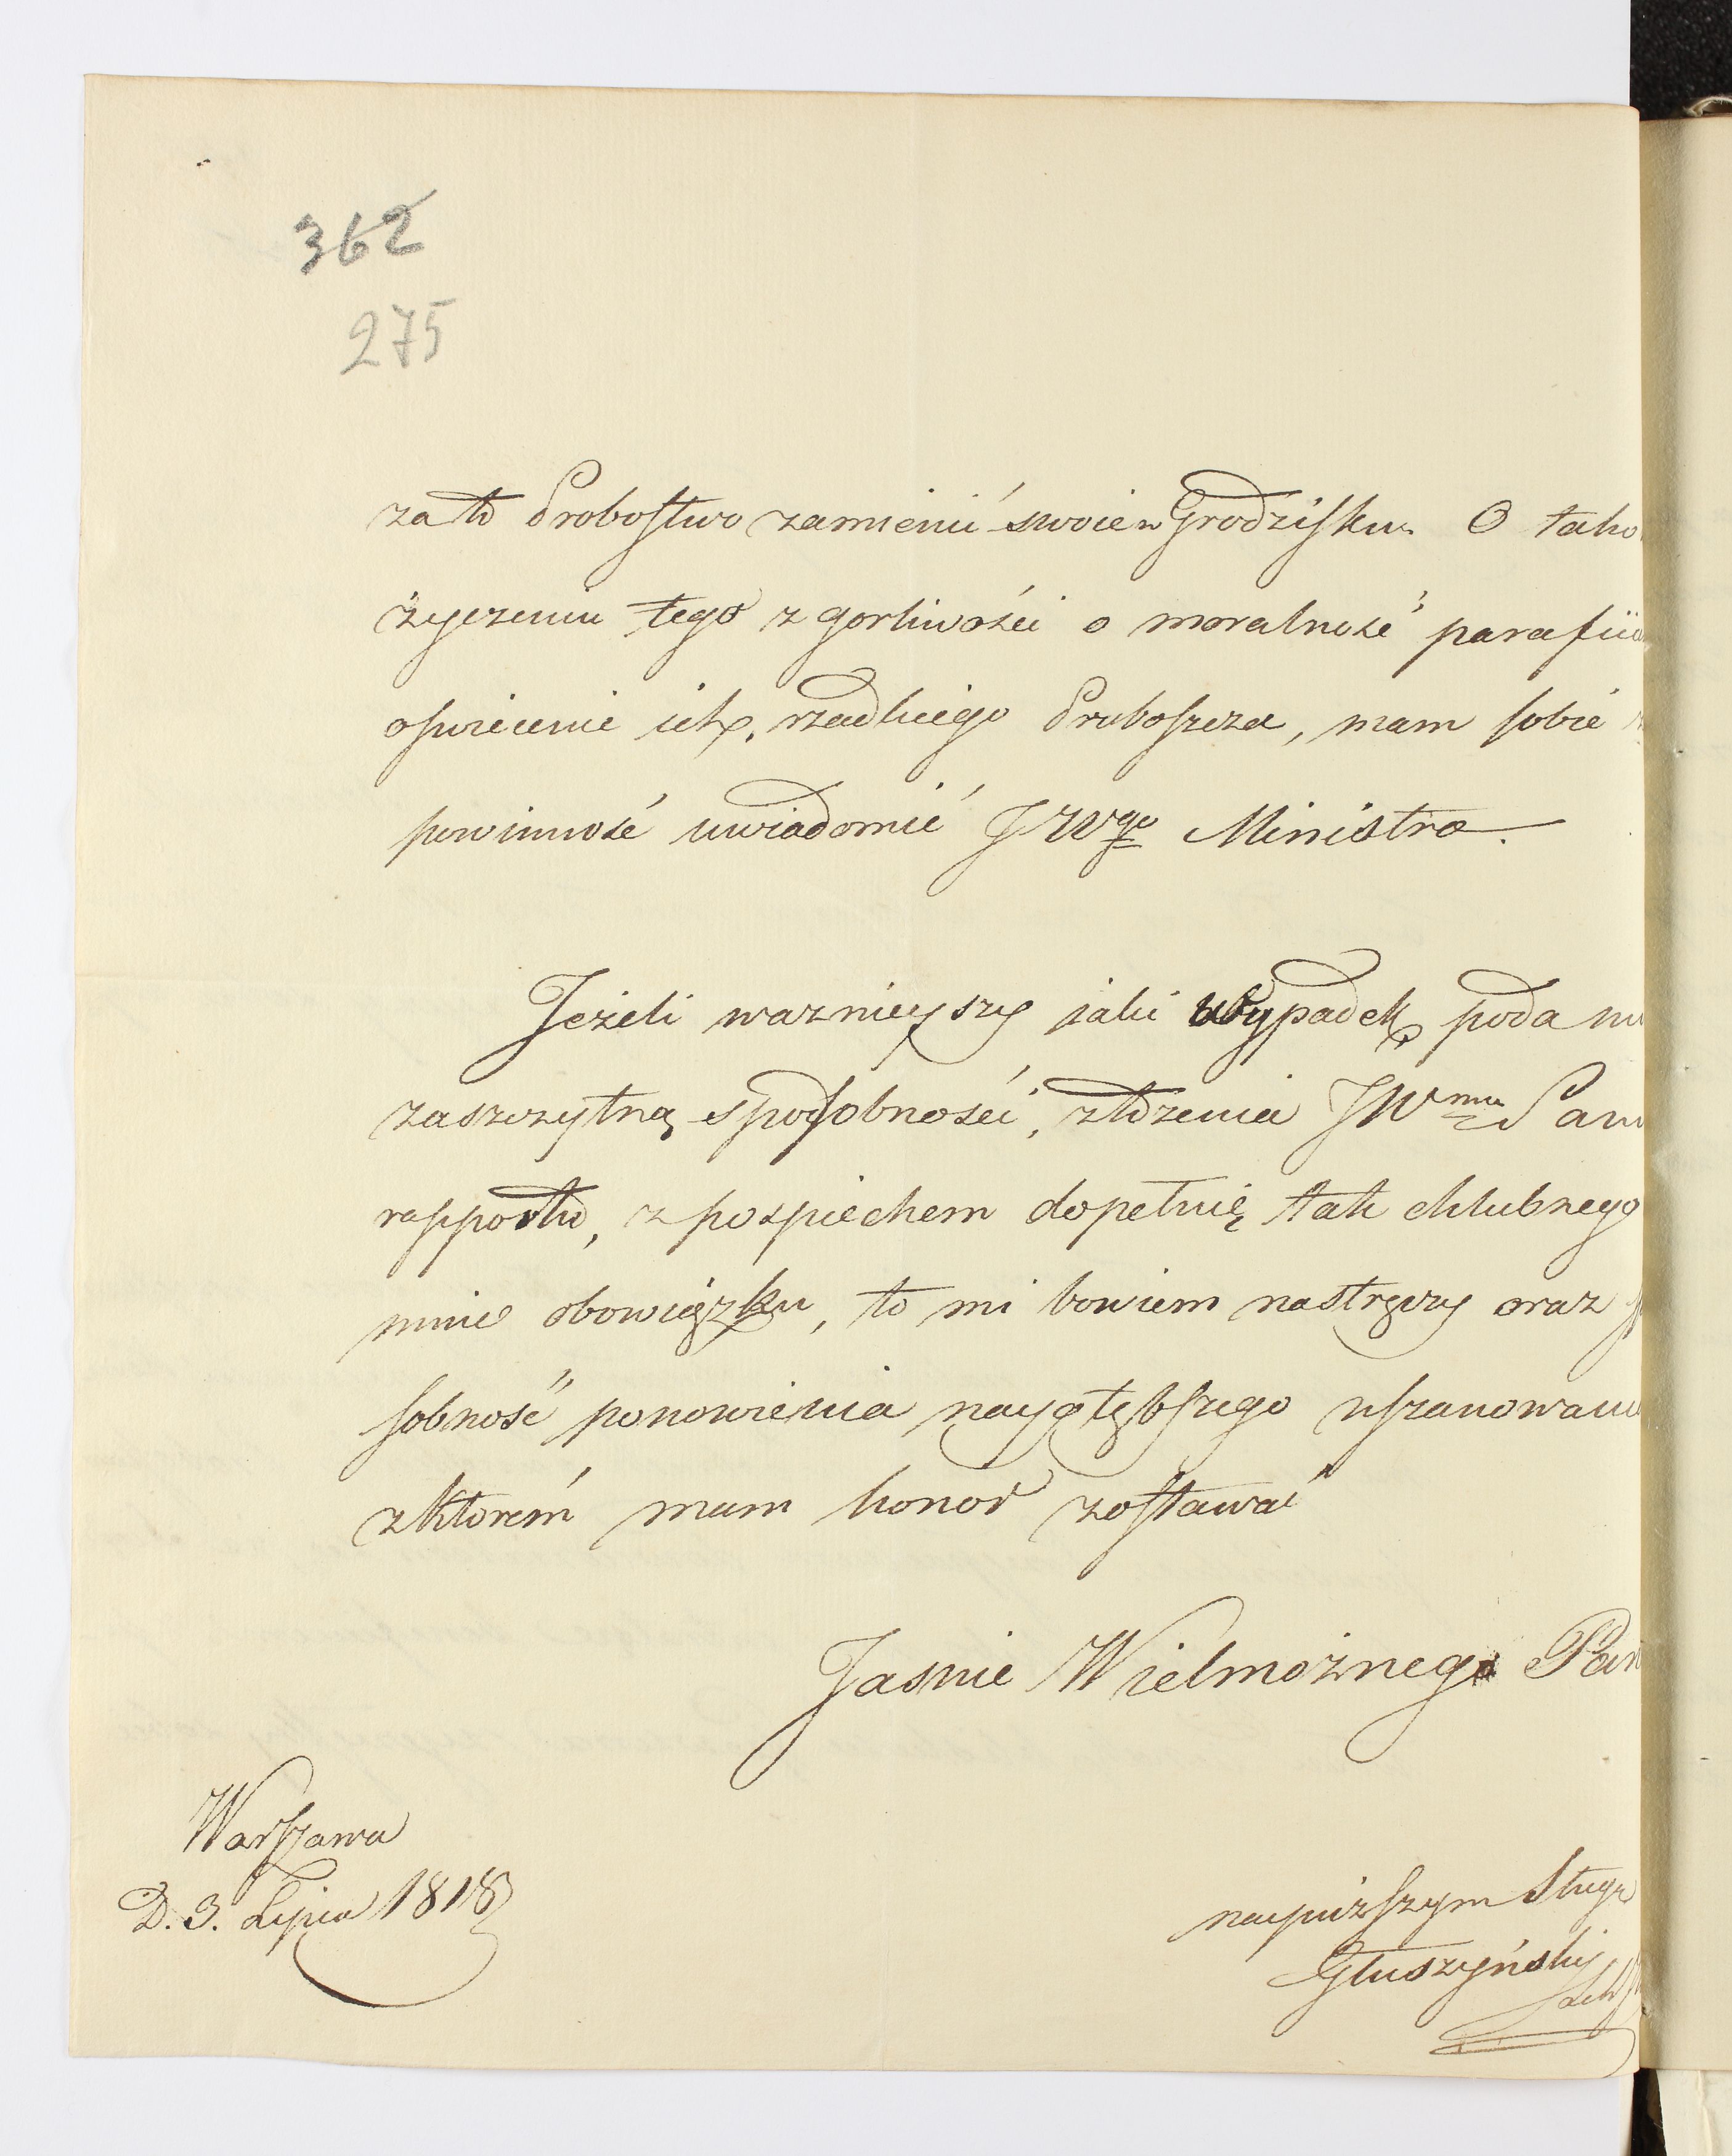 362
275
za to Probostwo zamienić swoie w Grodzisku. O tako
życzeniu tego z gorliwości o moralność parafii
oswiecenie ich, rzadkiego Proboszcza, mam sobie
powinność uwiadomić JWgo Ministra.
Jeżeli waznieyszy jaki wypadek poda mi
zaszczytną sposobność, złożenia JWmu Panu
rapportu, z pospiechem dopełnię tak chlubnego
mnie obowiązku, to mi bowiem nastręczy oraz
sobność ponowienia naygłębszego uszanowani
z ktorém mam honor zostawać
Jasnie Wielmożnego Pan
Warszawa
D. 3. Lipca 1818
nayniższym Sługą
Głuszyński